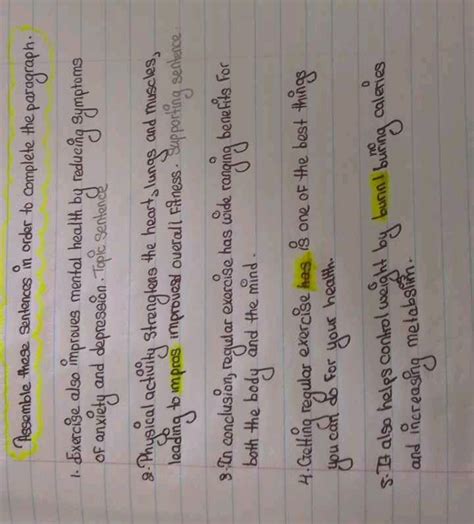 Assemble these sentences in order to complete the paragraph.
1. Exercise also improves mental health by reducing symptoms
of anxiety and depression. Topic sentence
2. Physical activity Strenghens the heart, lungs and muscles,
leading to impros improved overall Fitness. Supporting sentence
3. In conclusion, regular exercise has wide ranging benefits For
both the body and the mind.
4. Getting regular exercise has is one of the best things
you can do For your health.
5. It also helps control weight by burin no buring calories
and increasing metabslim.